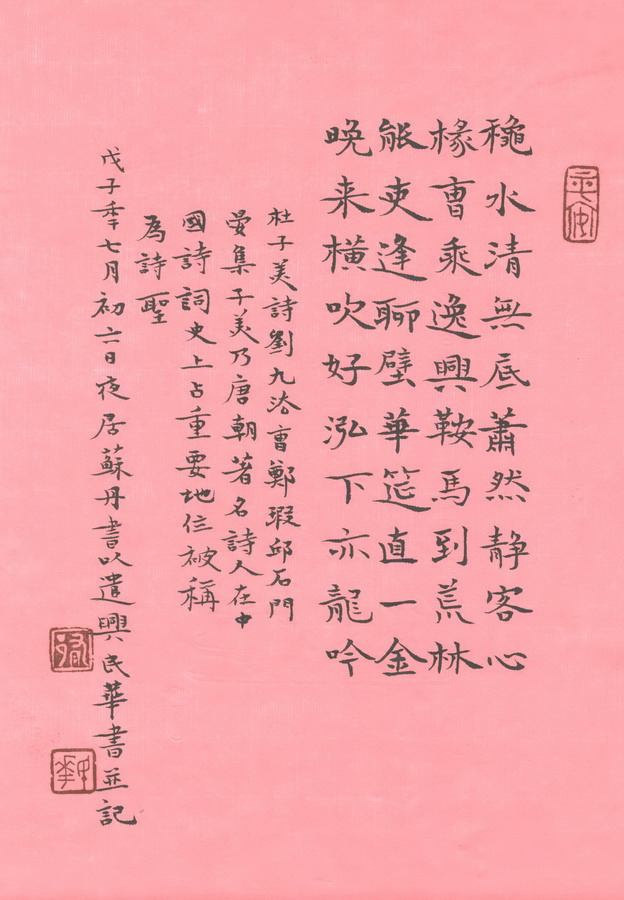 龝水清無底蕭然静客心
椽曺乘逸興鞍馬到荒林
能吏逢聊璧華筵直一金
晚来橫吹好泓下亦龍吟
杜子美詩劉九法曺鄭瑕邱石門
宴集子美乃唐朝著名詩人在中
國詩詞史上占重要地位被稱
為詩聖
戊子年七月初六日夜居蘇丹書以遣興民華書並記